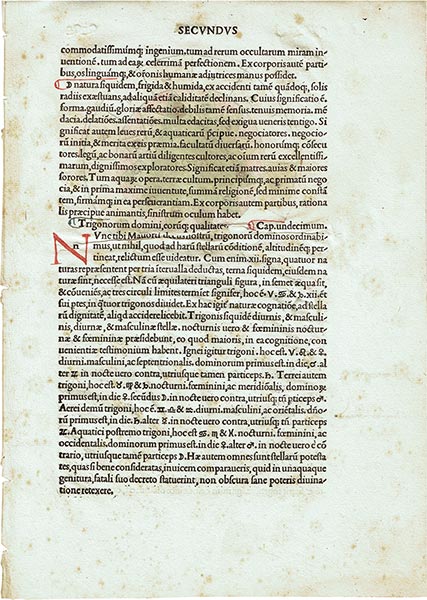 SECVNDVS
commodatissimusq; ingenium. tum ad rerum occultarum miram in
uentionē. tum ad eaȝ celerrimā perfectionem. Ex corporis autē parti
bus, os linguāq;, & oris humanæ adiutrices manus possidet.
D natura siquidem, frigida & humida, ex accidenti tamē quādoq;, solis
radiis exæstuans, ad aliquā et iā caliditatē declinans. Cuius significatio ē.
forma. gaudiū. gloriæ affectatio. debilis tamē sensus. tenuis memoria. mē
dacia. delatiões. assentatiões. multa edacitas, sed exigua ueneris tentigo. Si
gnificat autem leues rerū, & aquaticarū p̄cipue. negociatores. negocio
rū initia, & merita ex eis præmia. facultatū diuersarū. honorūsq; cōsecu
tores. legū, ac bonarū artiū diligentes cultores, ac oium rerū excellentissi
marum, dignissimos exploratores. Significat etiā matres. auias & maiores
sorores. Tum aquaȝ opera. terræ cultum. principiūsq;, ac primatū nego
cia, & in prima maxime iuuentute, summā religionē, sed minime constā
tem, firmāq; in ea perseuerantiam. Ex corporis autem partibus, rationa
lis præcipue animantis, sinistrum oculum habet.
Trigonorum domini, eorūq; qualitates. Cap. undecimum.
N Vnc tibi
n mus, ut nihil, quod ad harū stellarū cōditionē, altitudinēq; per
tineat, relictum esse uideatur. Cum enim. xii. signa, quatuor na
turas repræsentent per tria iterualla deductas, terna siquidem, eiusdem na
turæ sint, necesse est. Nā cū æquilateri trianguli figura, in semet æqua sit,
& cōueniēs, ac tres circuli limites termiet signifer, hoc ē. ♈. ♋. & ♑. xii. et
sui ptes, in q̄tuor trigonos diuidet. Ex hac igit̄ naturæ cognatiōe, ad stella
rū dignitatē, aliqd accidere licebit. Trigonis siquidē diurnis, & masculi
nis, diurnæ, & masculinæ stellæ. nocturnis uero & fœmininis noctur
næ & fœmininæ præsidebunt, eo quod maioris, in ea cognitione, con
uenientiæ testimonium habent. Ignei igitur trigoni. hoc est. ♈. ♌. & ♐.
diurni. masculini, ac septentrionalis. dominorum primus est in die, ☉. al
ter ♃ in nocte uero contra, utriusque tamen particeps. ♄. Terrei autem
trigoni, hoc est ♉. ♍. & ♑. nocturni. fœminini, ac meridiōalis, dominoȝ
primus est, in die. ♀. secūdus ☽. in nocte uero contra, utriusq; tn̄ p̄ticeps ♂.
Aerei demū trigoni, hoc ē. ♊. ♎. & ♒. diurni. masculini, ac oriētalis. dn̄o
rū primus est in die. ♄. alter ☿. in nocte uero contra, utriusq; tn̄ particeps
♃. Aquatici postremo trigoni, hoc est ♋. ♏. & ♓. nocturni. fœminini, ac
occidentalis. dominorum primus est in die ♀. alter ♂. in nocte uero ē cō
trario, utriusque tamē particeps ☽. Hæ autem omnes sunt stellarū potesta
tes, quas si bene consideratas, inuicem comparaueris, quid in unaquaque
genitura, fatali suo decreto statuerint, non obscura sane poteris diuina
tione retexere.